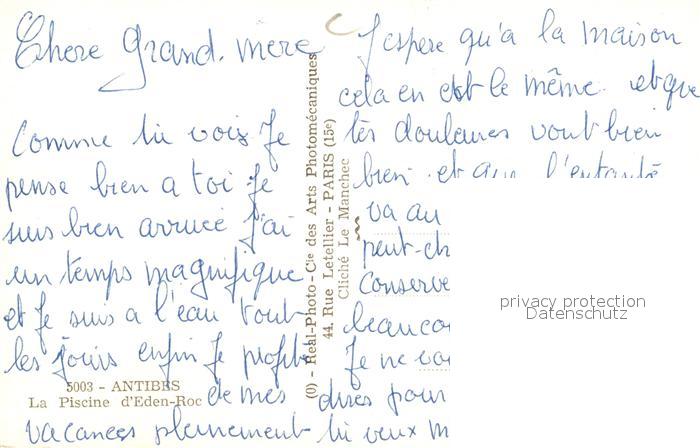 Chere Grand. mère
Comme tu vois Je
pense bien a toi. Je
suis bien arrivée J'ai
un temps magnifique
et Je suis a l'eau tout
les jours enfin Je profite
de mes
vacances pleinement
5003 - ANTIBES
La Piscine d'Eden-Roc
(O) - Real-Photo - Cie des Arts Photomécaniques
44, Rue Letellier - PARIS (15e)
Cliché Le Manchec
J'espere qu'a la maison
cela en est le même. et que
tes douleures vont bien
bien. et que l'entant
va au
peut-ch
Conserve
beaucou
Je ne
dires pour
tu veux m
privacy protection
Datenschutz